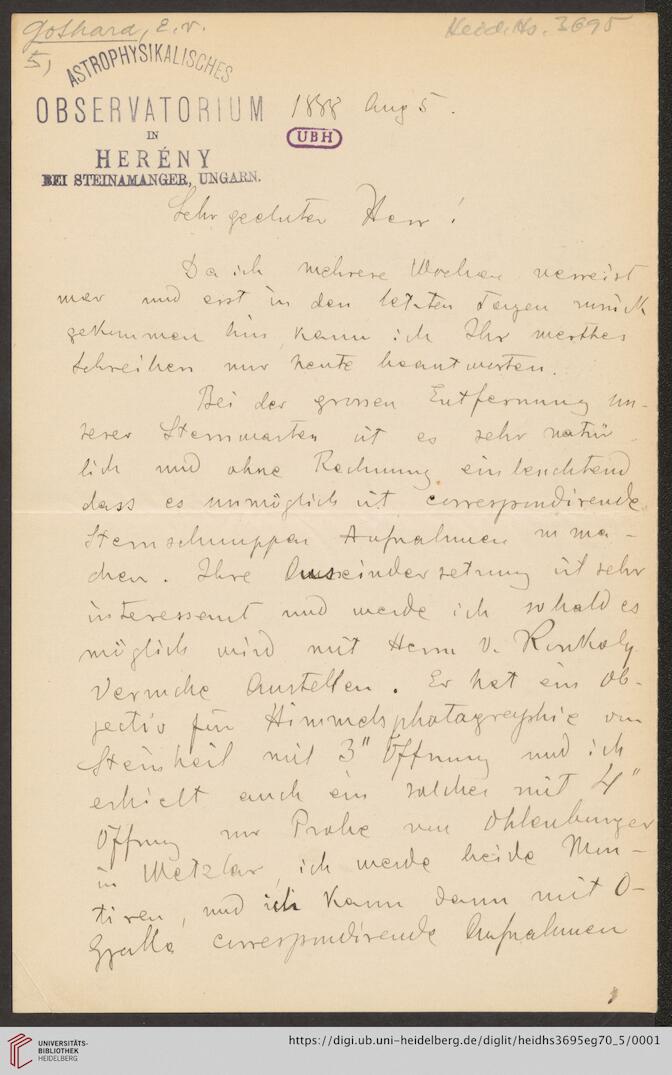 Gothard, E. v.
Heid. Hs. 3695
5)
ASTROPHYSIKALISCHES
OBSERVATORIUM
IN
HERÉNY
BEI STEINAMANGER, UNGARN.
1888 Aug 5.
UBH
Sehr geehrter Herr!
Da ich mehrere Wochen verreist
war und erst in den letzten Tagen zurück
gekommen bin, kann ich Ihr werthes
Schreiben nur heute beantworten.
Bei der grossen Entfernung un-
serer Sternwarten ist es sehr natür-
lich und ohne Rechnung einleuchtend
dass es unmöglich ist correspondirende
Sternschnuppen Aufnahmen zu ma-
chen. Ihre Auseindersetzung ist sehr
interessant und werde ich sobald es
möglich wird mit Herrn v. Konkoly
Versuche Anstellen. Er hat ein Ob-
jectiv für Himmelsphotographie von
Steinheil mit 3" Öffnung und ich
erhielt auch ein solches mit 4"
Öffnung zur Probe von Ohlenburger
in Wetzlar, ich werde beide Mon-
tiren, und ich kann dann mit O-
Gyalla correspondirende Aufnahmen
UNIVERSITÄTS-
BIBLIOTHEK
HEIDELBERG
https://digi.ub.uni-heidelberg.de/diglit/heidhs3695eg70_5/0001